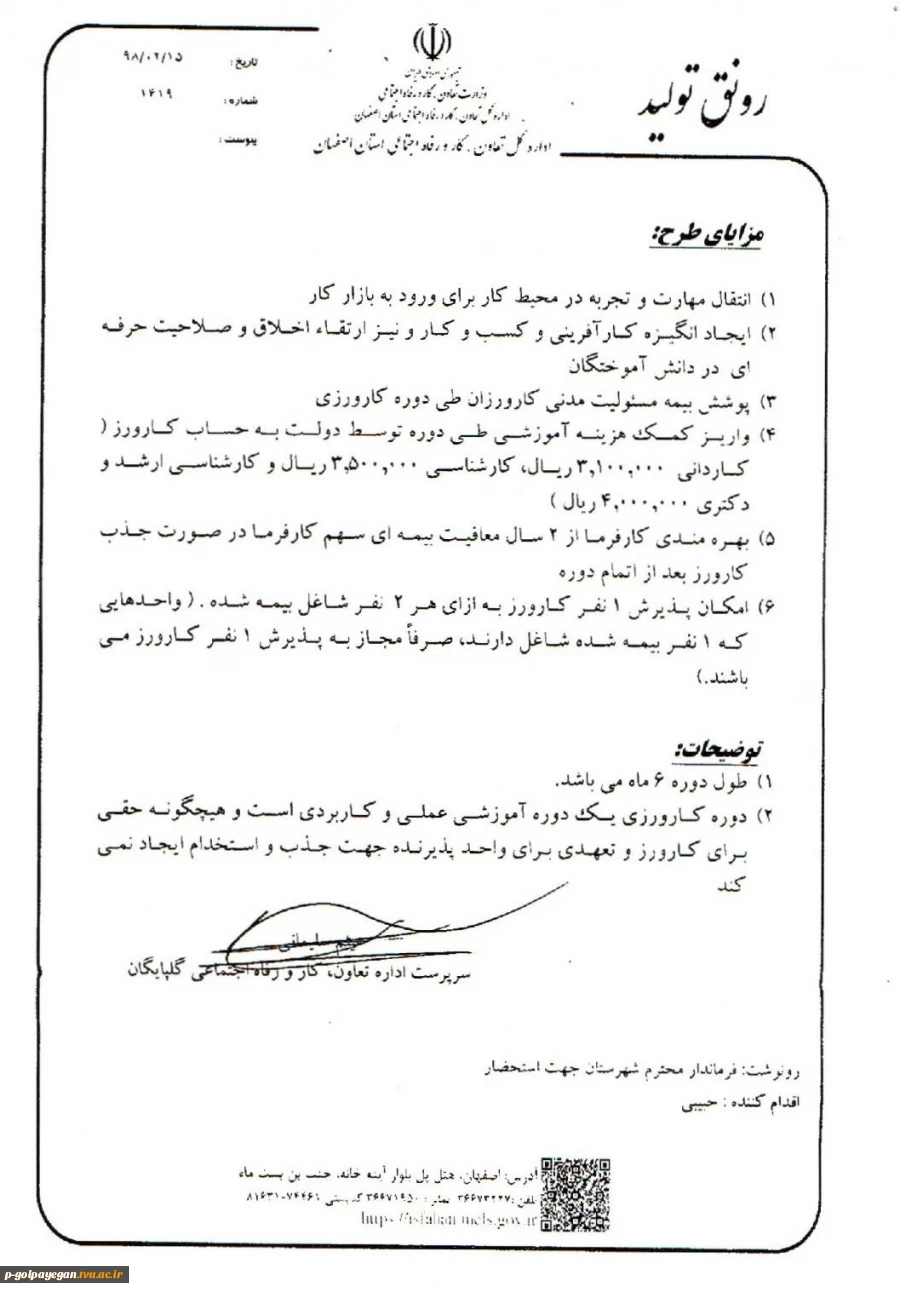 رونق تولید
جمهوری اسلامی ایران
وزارت تعاون، کار و رفاه اجتماعی
اداره کل تعاون، کار و رفاه اجتماعی استان اصفهان
اداره کل تعاون، کار و رفاه اجتماعی استان اصفهان
تاریخ: ۹۸/۰۲/۱۵
شماره: ۱۴۱۹
پیوست:
مزایای طرح:
۱) انتقال مهارت و تجربه در محیط کار برای ورود به بازار کار
۲) ایجاد انگیزه کارآفرینی و کسب و کار و نیز ارتقاء اخلاق و صلاحیت حرفه
ای در دانش آموختگان
۳) پوشش بیمه مسئولیت مدنی کارورزان طی دوره کارورزی
۴) واریز کمک هزینه آموزشی طی دوره توسط دولت به حساب کارورز (
کاردانی ۳,۱۰۰,۰۰۰ ریال، کارشناسی ۳,۵۰۰,۰۰۰ ریال و کارشناسی ارشد و
دکتری ۴,۰۰۰,۰۰۰ ریال )
۵) بهره مندی کارفرما از ۲ سال معافیت بیمه ای سهم کارفرما در صورت جذب
کارورز بعد از اتمام دوره
۶) امکان پذیرش ۱ نفر کارورز به ازای هر ۲ نفر شاغل بیمه شده . ( واحدهایی
که ۱ نفر بیمه شده شاغل دارند، صرفاً مجاز به پذیرش ۱ نفر کارورز می
باشند.)
توضیحات:
۱) طول دوره ۶ ماه می باشد.
۲) دوره کارورزی یک دوره آموزشی عملی و کاربردی است و هیچگونه حقی
برای کارورز و تعهدی برای واحد پذیرنده جهت جذب و استخدام ایجاد نمی
کند
سرپرست اداره تعاون، کار و رفاه اجتماعی گلپایگان
رونوشت: فرماندار محترم شهرستان جهت استحضار
اقدام کننده : حبیبی
آدرس: اصفهان، هتل پل بلوار آینه خانه، جنب بن بست ماه
تلفن: ۳۶۶۷۳۲۲۷ نمابر: ۳۶۶۷۱۹۵۰ کدپستی ۷۴۴۶۱-۸۱۶۳۱
https://isfahan.mcls.gov.ir
p-golpayegan.tvu.ac.ir